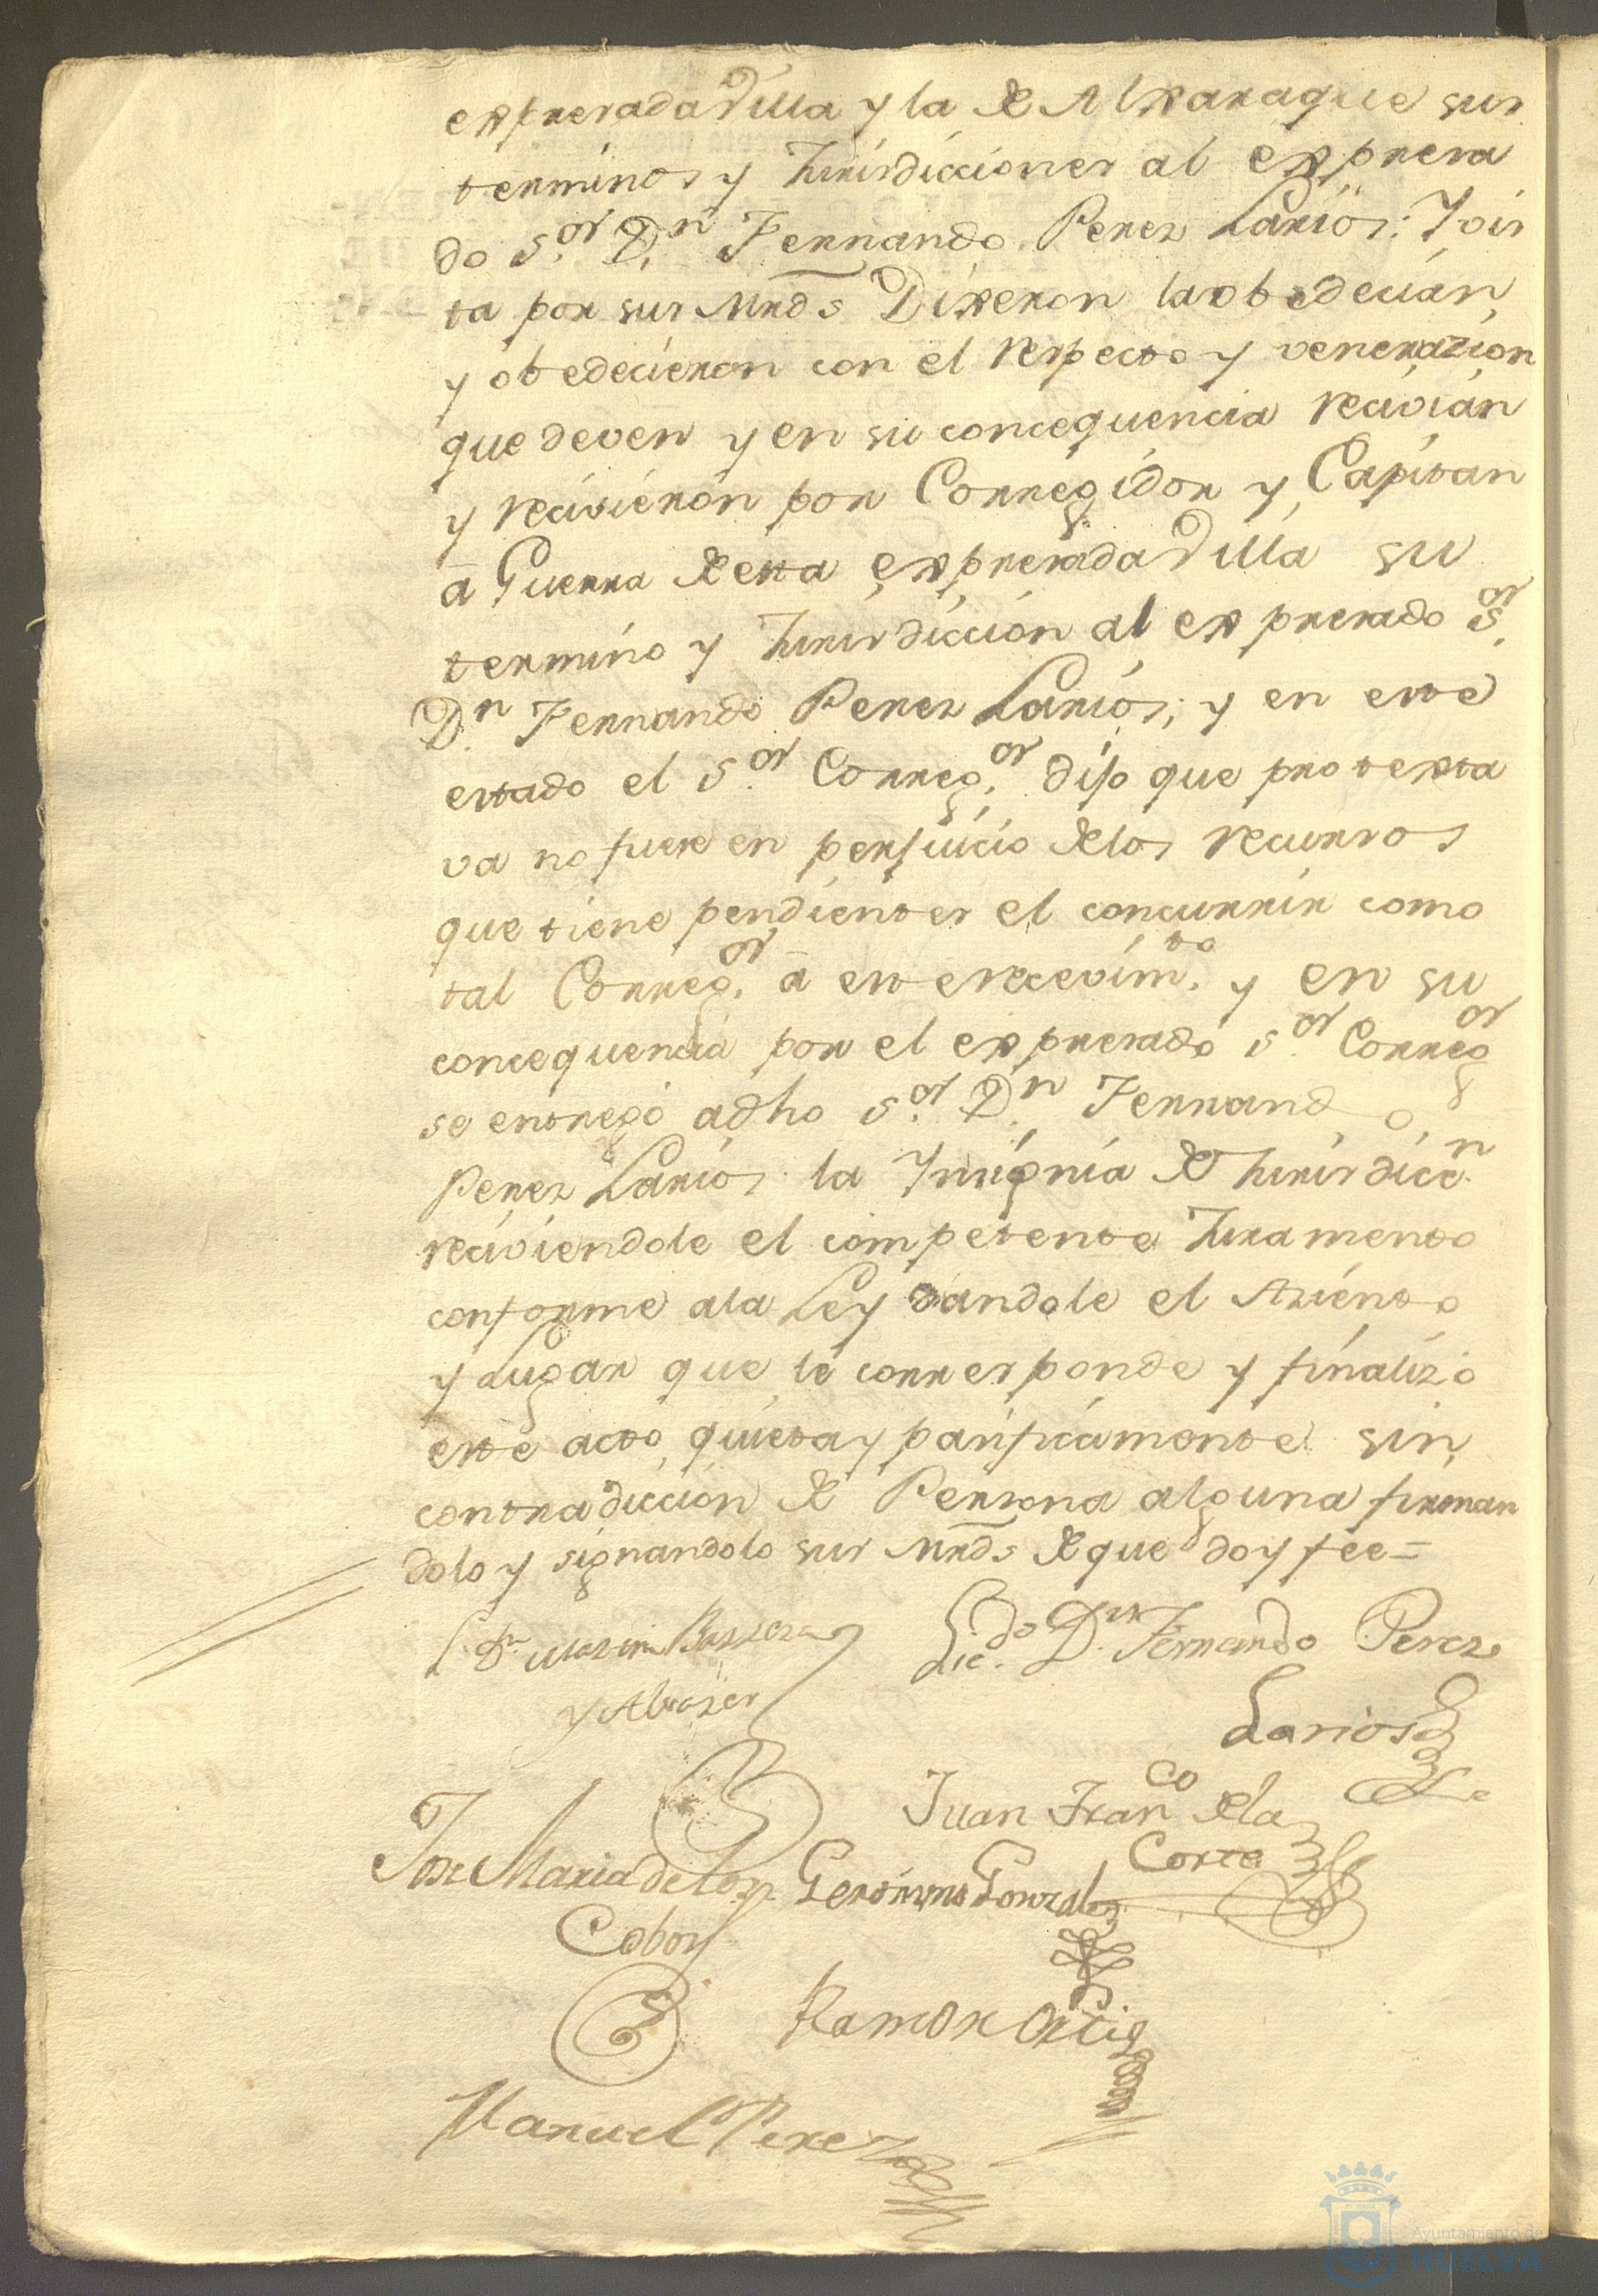 expresada Villa y la de Alxaraque sus
terminos y Jurisdicciones al expresa
do S.or D.n Fernando Perez Larios: Y ois
ta por sus Mrds Dixeron la obedecian
y obedecieron con el respecto y venerazion
que deven y en su concequencia recivian
y recivieron por Corregidor y Capitan
â Guerra de esta expresada Villa su
termino y Jurisdiccion al expresado S.or
D.n Fernando Perez Larios; y en este
estado el S.or Correg.or dijo que protexta
va no fuese en perjuicio de los recursos
que tiene pendientes el concurrir como
tal Correg.or â este recevim.to y en su
concequencia por el expresado S.or Correg.or
se entregó adho S.or D.n Fernando
Perez Larios la Ynsignia de Jurisdicc.n
reciviendole el competente Juramento
conforme ala Ley dandole el Aziento
y Lugar que le corresponde y finalizó
este acto quieta y pacificamente sin
contradiccion de Persona alguna firman
dolo y signandolo sus Mrds de que doy fee=
L. D.n Martin Barrera
y
Lic.do D.n Fernando Perez
Larios
Juan Fran.co de la
Corte
Jose Maria de los
Cobos
Geronimo Gonzales
Ramon Ortiz
Manuel Perez
Ayuntamiento de
HUELVA